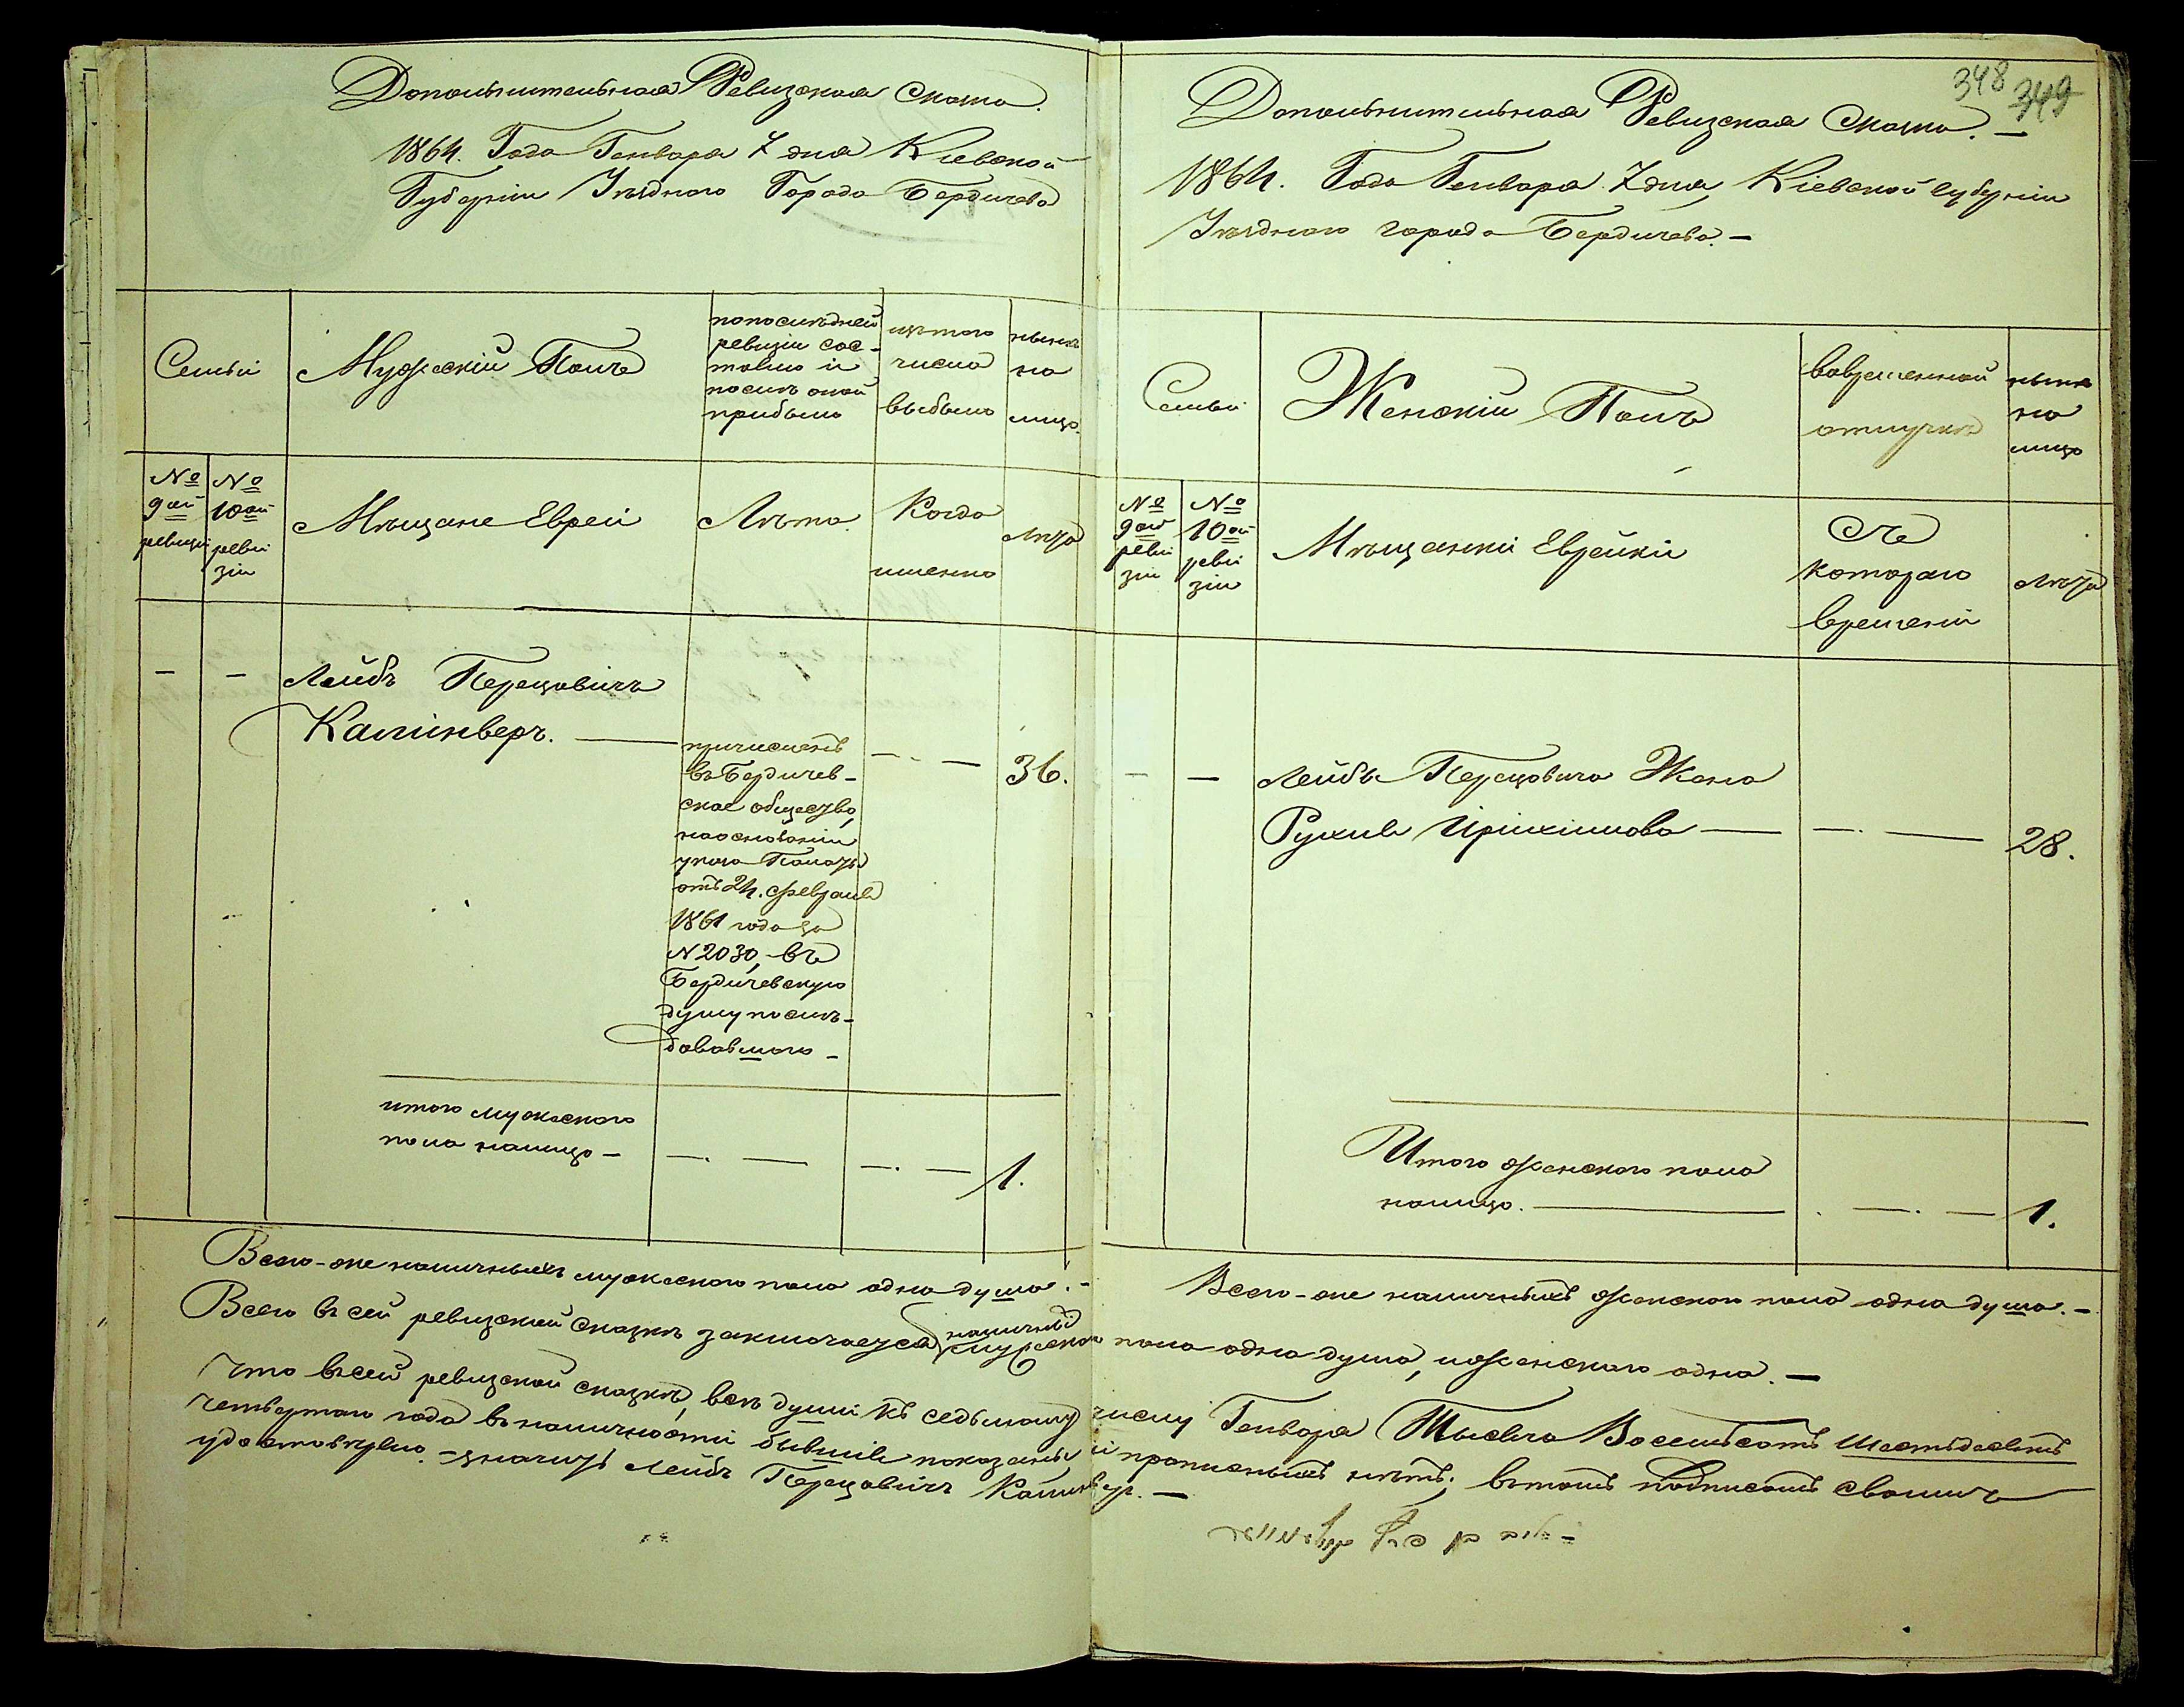 Дополнительная Ревизская Сказка.
1864. Года Генваря 7 дня Кіевской
Губерніи Уѣзднаго Города Бердичева
Семьи
Мужескій Полъ
по послѣдней
ревизіи сос-
тояло и
послѣ оной
прибыло
изъ того
числа
выбыло
нынѣ
на
лицо.
№
9ой
ревизіи
№
10ой
реви
зіи
Мѣщане Евреи
Лѣта.
Когда
именно
Лѣта
Лейбъ Перецовичъ
Калинверъ.
причисленъ
въ Бердичев-
ское общество,
на основаніи
указа Палаты
отъ 24. Февраля
1861 года за
№ 2030, въ
Бердичевскую
думу послѣ-
довавшаго
36.
итого мужескаго
пола налицо
1.
Всего-же наличныхъ мужескаго пола одна душа.
348 349
Дополнительная Ревизская Сказка.
1864. Года Генваря 7 дня Кіевской губерніи
Уѣзднаго города Бердичева.
Семьи
Женскій Полъ
во временной
отлучкѣ
нынѣ
на
лицо
№
9ой
реви
зіи
№
10ой
реви
зіи
Мѣщанки Еврейки
Съ
котораго
времени
Лѣта
Лейба Перецовича Жена
28.
Итого женскаго пола
налицо.
1.
Всего-же наличныхъ женскаго пола одна душа.
Всего въ сей ревизской сказкѣ заключается наличныхъ мужескаго пола одна душа, и женскаго одна.
Что въ сей ревизской сказкѣ, всѣ души къ седьмому числу Генваря Тысяча Восемьсотъ Шестьдесятъ
четвертаго года въ наличности бывшія показаны и прописныхъ нѣтъ; въ томъ подписомъ своимъ
удостовѣряю. Лейбъ Перецовичъ Калинверъ.